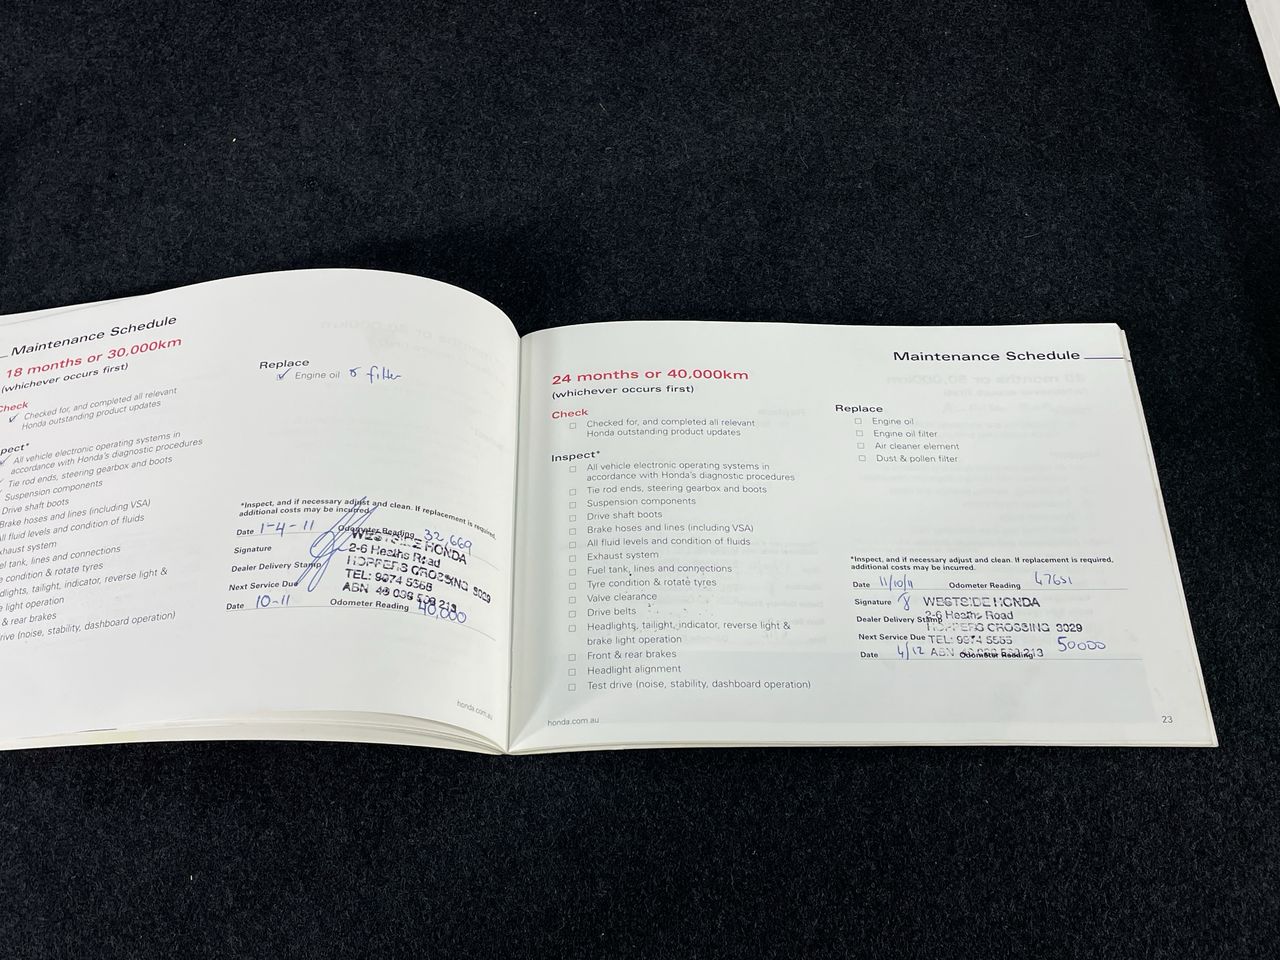 Maintenance Schedule
18 months or 30,000km
(whichever occurs first)
Check
Checked for, and completed all relevant
Honda outstanding product updates
pect*
All vehicle electronic operating systems in
accordance with Honda's diagnostic procedures
Tie rod ends, steering gearbox and boots
Suspension components
Drive shaft boots
Brake hoses and lines (including VSA)
All fluid levels and condition of fluids
xhaust system
el tank, lines and connections
e condition & rotate tyres
dlights, tailight, indicator, reverse light &
e light operation
& rear brakes
rive (noise, stability, dashboard operation)
Replace
Engine oil & filter
*Inspect, and if necessary adjust and clean. If replacement is required,
additional costs may be incurred.
Date 1-4-11 Odometer Reading 32,669
Signature
Dealer Delivery Stamp
WESTSIDE HONDA
2-6 Heaths Road
HOPPERS CROSSING 3029
TEL: 9974 5555
ABN
Next Service Due
Date 10-11 Odometer Reading 40,000
honda.com.au
Maintenance Schedule
24 months or 40,000km
(whichever occurs first)
Check
Checked for, and completed all relevant
Honda outstanding product updates
Inspect*
All vehicle electronic operating systems in
accordance with Honda's diagnostic procedures
Tie rod ends, steering gearbox and boots
Suspension components
Drive shaft boots
Brake hoses and lines (including VSA)
All fluid levels and condition of fluids
Exhaust system
Fuel tank, lines and connections
Tyre condition & rotate tyres
Valve clearance
Drive belts
Headlights, tailight, indicator, reverse light &
brake light operation
Front & rear brakes
Headlight alignment
Test drive (noise, stability, dashboard operation)
Replace
Engine oil
Engine oil filter
Air cleaner element
Dust & pollen filter
*Inspect, and if necessary adjust and clean. If replacement is required,
additional costs may be incurred.
Date 11/10/11 Odometer Reading 47651
Signature
Dealer Delivery Stamp
WESTSIDE HONDA
2-6 Heaths Road
HOPPERS CROSSING 3029
TEL: 9974 5555
ABN
Next Service Due
Date 4/12 Odometer Reading 50000
honda.com.au
23